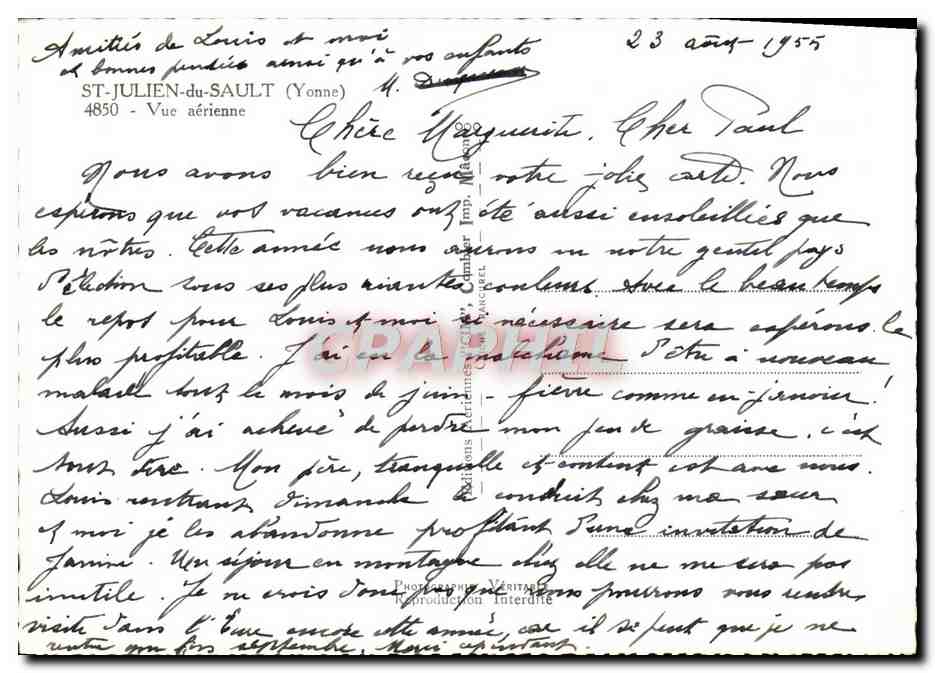 23 août 1955
Amitiés de Louis et moi
et bonnes pensées ainsi qu'à vos enfants
M.
ST-JULIEN-du-SAULT (Yonne)
4850 - Vue aérienne
Chère Marguerite, Cher Paul
Nous avons bien reçu votre jolie carte. Nous
espérons que vos vacances ont été aussi ensoleillées que
les nôtres. Cette année nous aurons vu notre gentil pays
d'élection sous ses plus riantes couleurs. Avec le beau temps
le repos pour Louis et moi si nécessaire sera espérons le
plus profitable. J'ai eu la malchance d'être à nouveau
malade tout le mois de juin - fièvre comme en janvier!
Aussi j'ai achevé de perdre mon peu de graisse, c'est
tout dire. Mon père, tranquille et content est avec nous.
Louis rentrant dimanche le conduit chez ma sœur
et moi je les abandonne profitant d'une invitation de
Janine. Un séjour en montagne chez elle ne me sera pas
inutile. Je ne crois donc pas que nous pourrons vous rendre
visite dans l'Eure encore cette année, car il se peut que je ne
rentre que fin septembre. Merci cependant.
Editions Aériennes "CIM", Combier Imp. Mâcon
PHOTOGRAPHIE VÉRITABLE
Reproduction Interdite
CPAPHIL